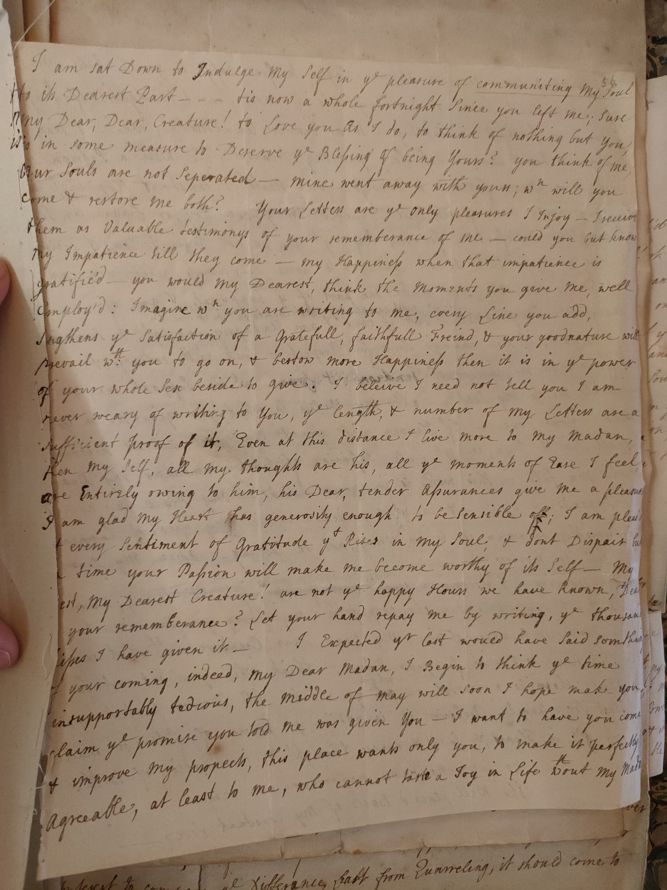 I am sat Down to Indulge My Self in ye pleasure of communiting My Soul
to its Dearest Part - - - tis now a whole fortnight Since you left me; Sure
My Dear, Dear, Creature! to Love you as I do, to think of nothing but you,
is in some measure to Deserve ye Blessing of being Yours? you think of me,
our Souls are not Seperated — Mine went away with yours; wn will you
come & restore me both? Your Letters are ye only pleasures I Enjoy — I receive
them as Valuable testimonys of your rememberance of me — could you but know
My Impatience till they come — My Happiness when that impatience is
gratified — you would My Dearest, think the Moments you give Me, well
Employ'd: Imagine wn you are writing to me, every Line you add,
lengthens ye Satisfaction of a Gratefull, faithfull Freind, & your goodnature will
prevail wth you to go on, & bestow more Happiness then it is in ye power
of your whole Sex beside to give. I beleive I need not tell you I am
never weary of writing to You, ye length, & number of My Letters are a
Sufficient proof of it, Even at this distance I live more to My Madan,
then My Self, all My thoughts are his, all ye moments of Ease I feel
are Entirely owing to him, his Dear, tender Assurances give me a pleasure
I am glad My Heart has generosity enough to be Sensible of; I am pleas'd
every Sentiment of Gratitude yt Rises in My Soul, & dont Dispair but
time your Passion will make me become worthy of its Self — My
My Dearest Creature! are not ye happy Hours we have known, Dear
your rememberance? Let your hand repay me by writing, ye thousand
kisses I have given it — I Expected yr last would have Said something
your coming, indeed, My Dear Madan, I Begin to think ye time
insupportably tedious, the Middle of May will Soon I hope make you
claim ye promise you told me was given You — I want to have you come
& improve My propects, this place wants only you, to make it perfectly
Agreeable, at least to me, who cannot taste a Joy in Life wthout My Madan
from Quarreling, it should come to